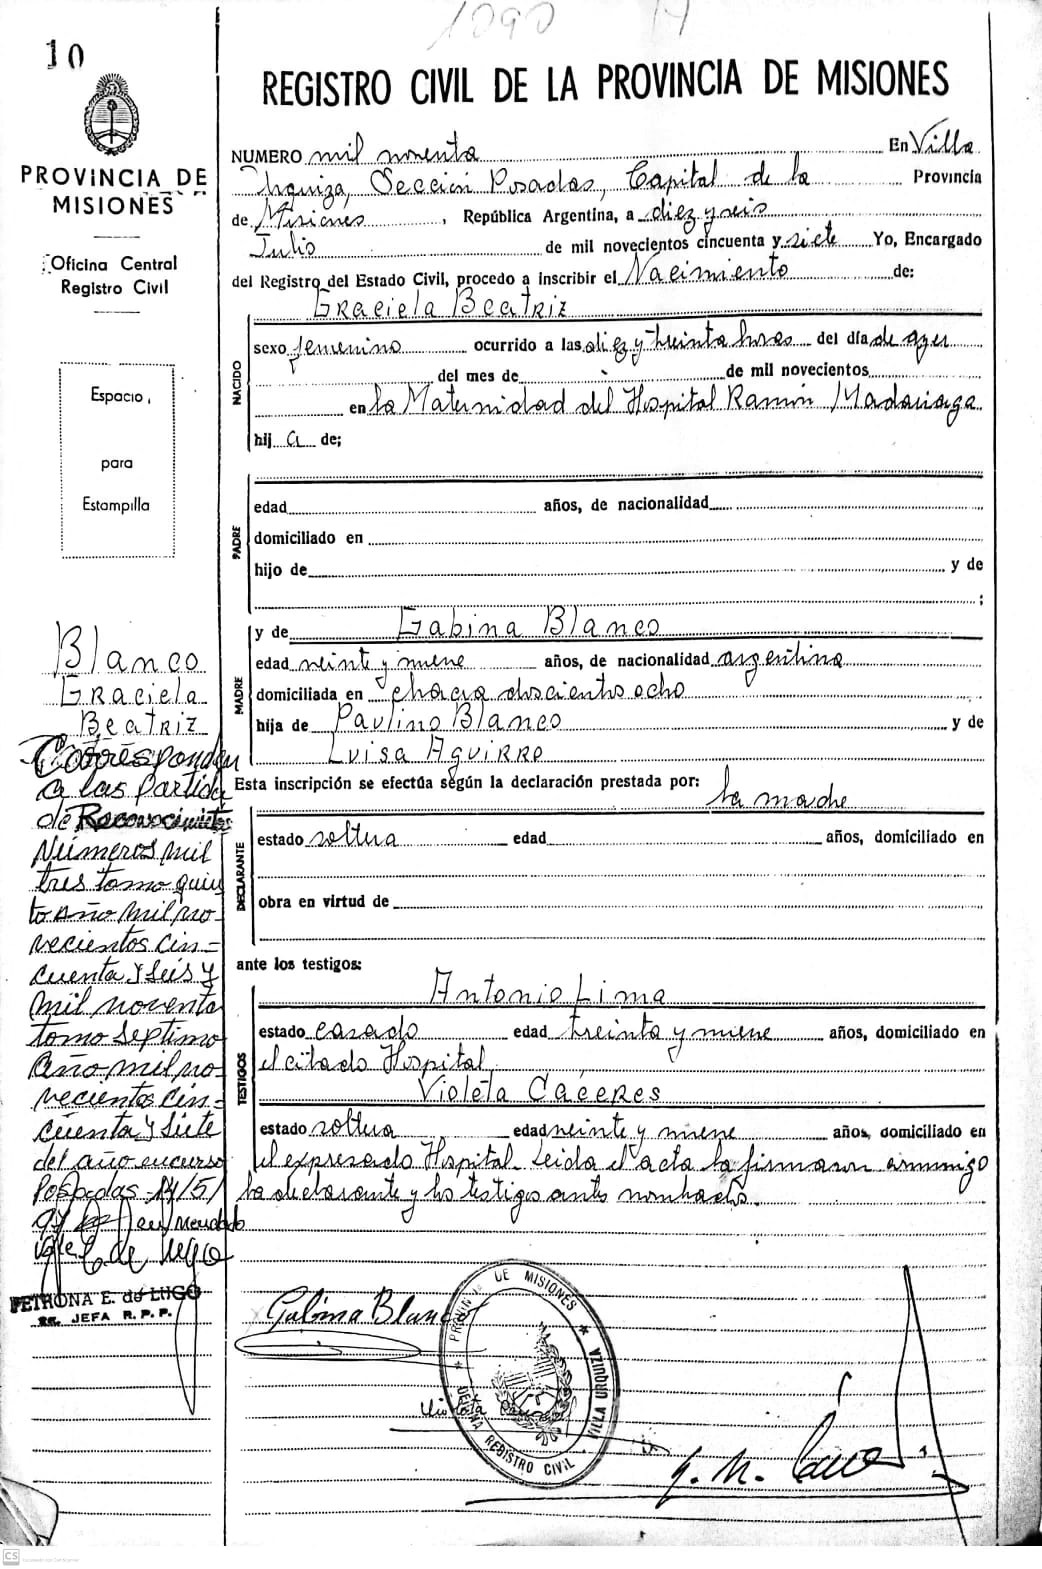 1090
10
PROVINCIA DE
MISIONES
Oficina Central
Registro Civil
Espacio
para
Estampilla
REGISTRO CIVIL DE LA PROVINCIA DE MISIONES
NUMERO mil noventa En Villa
Urquiza, Sección Posadas, Capital de la Provincia
de Misiones, República Argentina, a diez y seis
Julio de mil novecientos cincuenta y siete Yo, Encargado
del Registro del Estado Civil, procedo a inscribir el Nacimiento de:
Graciela Beatriz
NACIDO
sexo femenino ocurrido a las diez y treinta horas del día de ayer
del mes de de mil novecientos
en la Maternidad del Hospital Ramón Madariaga
hij a de;
PADRE
edad años, de nacionalidad
domiciliado en
hijo de y de
;
MADRE
y de Gabina Blanco
edad veinte y nueve años, de nacionalidad argentina
domiciliada en chacra doscientos ocho
hija de Paulino Blanco y de
Luisa Aguirre
Esta inscripción se efectúa según la declaración prestada por: la madre
DECLARANTE
estado soltera edad años, domiciliado en
obra en virtud de
ante los testigos:
Antonio Lima
TESTIGOS
estado casado edad treinta y nueve años, domiciliado en
el citado Hospital
Violeta Caceres
estado soltera edad veinte y nueve años, domiciliado en
el expresado Hospital. Leida el acta la firmaron conmigo
la declarante y los testigos antes nombrados.
Blanco
Graciela
Beatriz
Corresponden
a las Partida
de Reconocimientos
Números mil
tres tomo quin
to Año mil no-
vecientos cin-
cuenta y seis y
mil noventa
tomo septimo
Año mil no-
vecientos cin-
cuenta y siete
del año en curso
Posadas 14/5/
PETRONA E. de LUGO
JEFA R. P. P.
Gabina Blanco
PROVINCIA DE MISIONES
VILLA URQUIZA
OFICINA REGISTRO CIVIL
CS